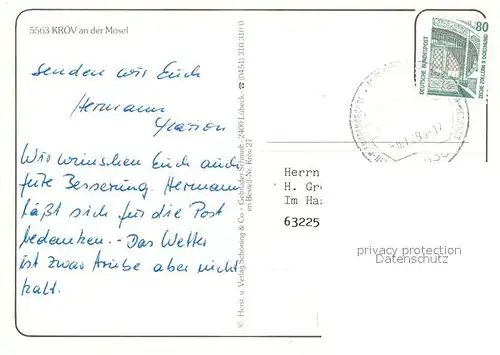 5563 KRÖV an der Mosel
senden wir Euch
Hermann
Wir wünschen Euch auch
gute Besserung. Hermann
läßt sich für die Post
bedanken. - Das Wetter
ist zwar trübe aber nicht
kalt.
© Herst. u. Verlag Schöning & Co. - Gebrüder Schmidt - 2400 Lübeck
im Bestell-Nr. Kroe 27
80
DEUTSCHE BUNDESPOST
ZECHE ZOLLERN II DORTMUND
Herrn
H. Gr
Im Ha
63225
privacy protection
Datenschutz